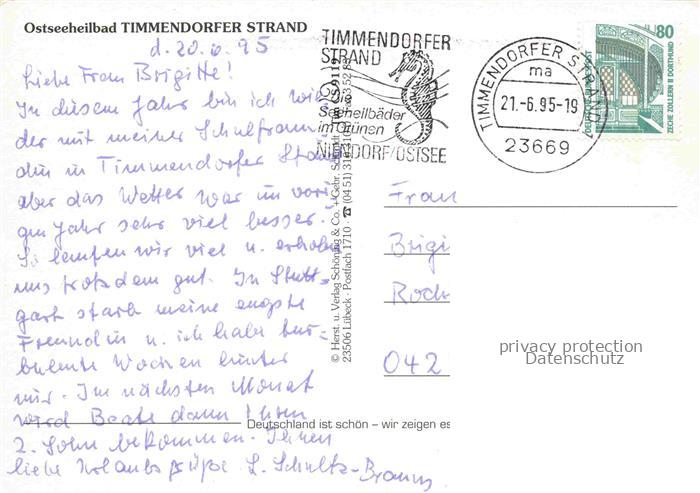 Ostseeheilbad TIMMENDORFER STRAND
d. 20.6.95
Liebe Frau Brigitte!
In diesem Jahr bin ich wie-
der mit meiner Schulfreun-
din in Timmendorfer Stra
aber das Wetter war im vori-
gen Jahr sehr viel besser.
So laufen wir viel u. erholen
uns trotzdem gut. In Stutt-
gart starb meine engste
Freundin u. ich habe tur-
bulente Wochen hinter
mir. Im nächsten Monat
wird Beate dann Ihren
2. Sohn bekommen. Ihnen
liebe Urlaubsgrüße L. Schultz-Braun
TIMMENDORFER
STRAND
Seeheilbäder
im Grünen
NIENDORF/OSTSEE
TIMMENDORFER STRAND
ma
21.-6.95-19
23669
80
DEUTSCHE BUNDESPOST
ZECHE ZOLLERN II DORTMUND
© Herst. u. Verlag Schöning & Co. + Gebr. Schmidt
23506 Lübeck · Postfach 1710 · ☎ (04 51)
Frau
Brigi
Roch
042
privacy protection
Datenschutz
Deutschland ist schön – wir zeigen es